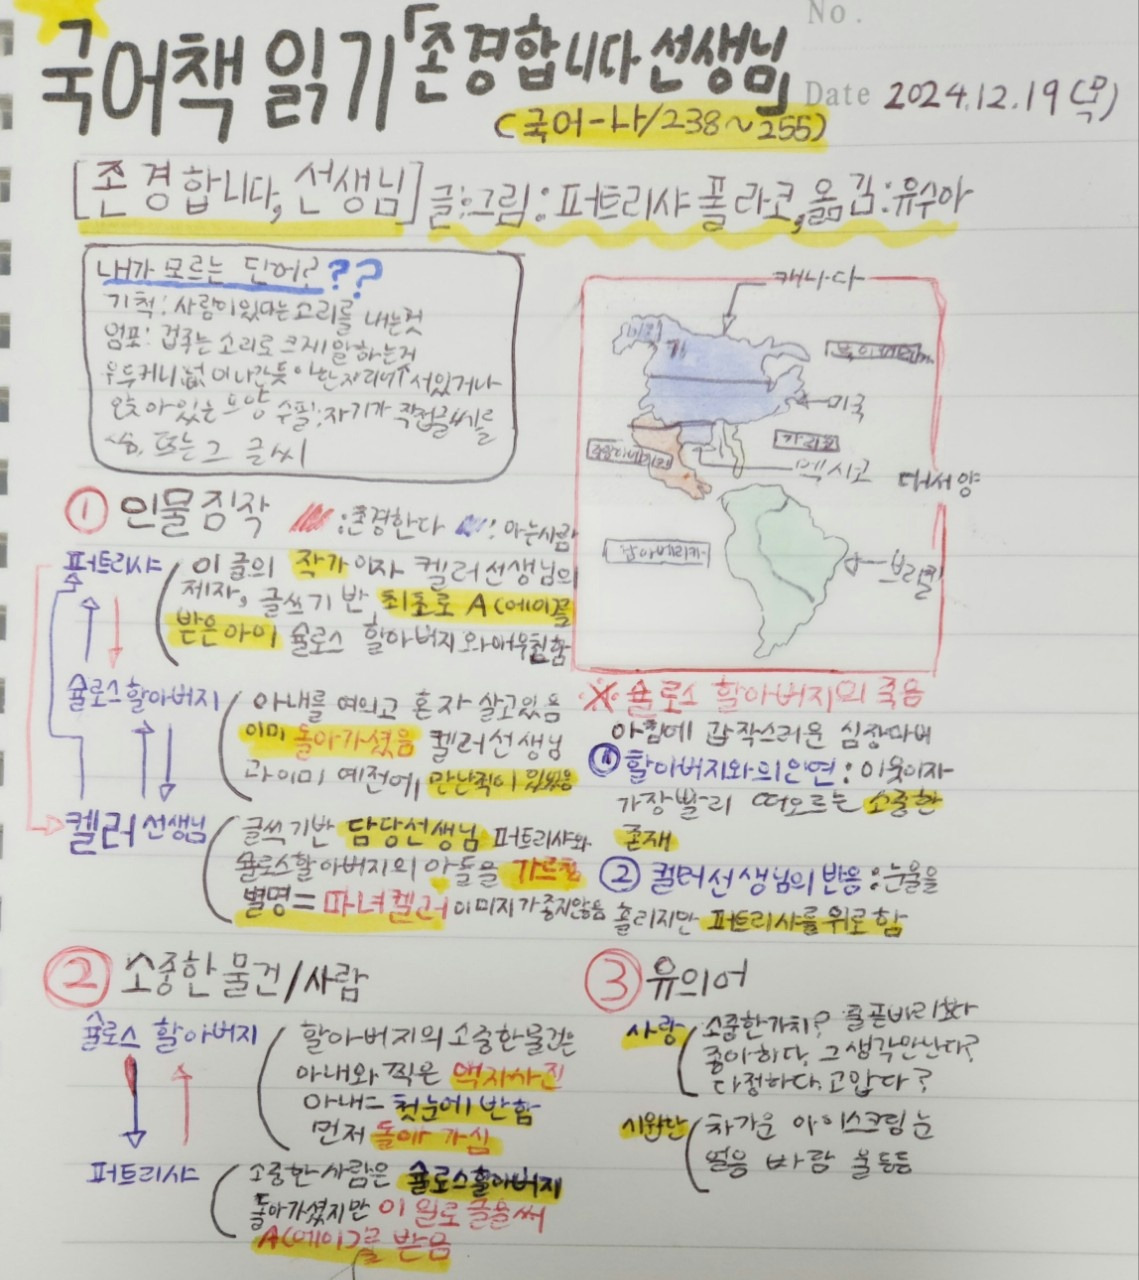 No.
국어책 읽기「존경합니다 선생님」
Date 2024.12.19(목)
(국어-나/238~255)
[존경합니다, 선생님] 글:그림:퍼트리샤 폴라코, 옮김:유수아
내가 모르는 단어로??
기척: 사람이 있다는 소리를 내는것
엄포: 겁주는 소리로 크게 말하는거
우두커니 넋이 나간듯이 한자리에 서있거나
앉아있는 모양 수필: 자기가 직접글씨를
씀, 또는 그 글씨
캐나다
미국
멕시코
대서양
남아메리카
브라질
① 인물짐작 :존경한다 : 아는사람
퍼트리샤
이 글의 작가이자 켈러선생님의
제자, 글쓰기 반, 최초로 A(에이)를
받은아이 슐로스 할아버지와 매우친함
슐로스할아버지
아내를 여의고 혼자 살고있음
이미 돌아가셨음 켈러선생님
과 이미 예전에 만난적이 있었음
켈러 선생님
글쓰기반 담당선생님 퍼트리샤와
슐로스할아버지의 아들을 가르침
별명= 마녀켈러 이미지가 좋지않음
※ 슐로스 할아버지의 죽음
아침에 갑작스러운 심장마비
① 할아버지와의인연: 이웃이자
가장빨리 떠오르는 소중한
존재
② 켈러선생님의 반응: 눈물을
흘리지만 퍼트리샤를 위로함
② 소중한 물건/사람
슐로스 할아버지
할아버지의 소중한물건은
아내와 찍은 액자사진
아내= 첫눈에 반함
먼저 돌아가심
퍼트리샤
소중한 사람은 슐로스할아버지
돌아가셨지만 이 일로 글을써
A(에이)를 받음
③ 유의어
사랑
소중한가치?
좋아하다, 그생각만난다?
다정하다, 고맙다?
시원한
차가운 아이스크림 눈
얼음 바람 물 등등